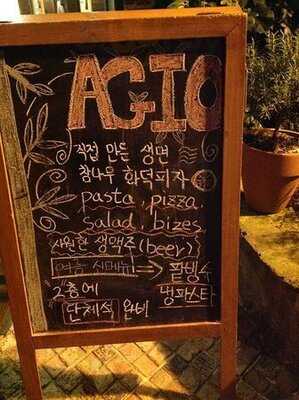 AGIO
직접 만든 생면
참나무 화덕피자
pasta, pizza,
salad, bizes
시원한 생맥주(beer)
여름 시즌메뉴 => 팥빙수
2층에 냉파스타
단체석 완비